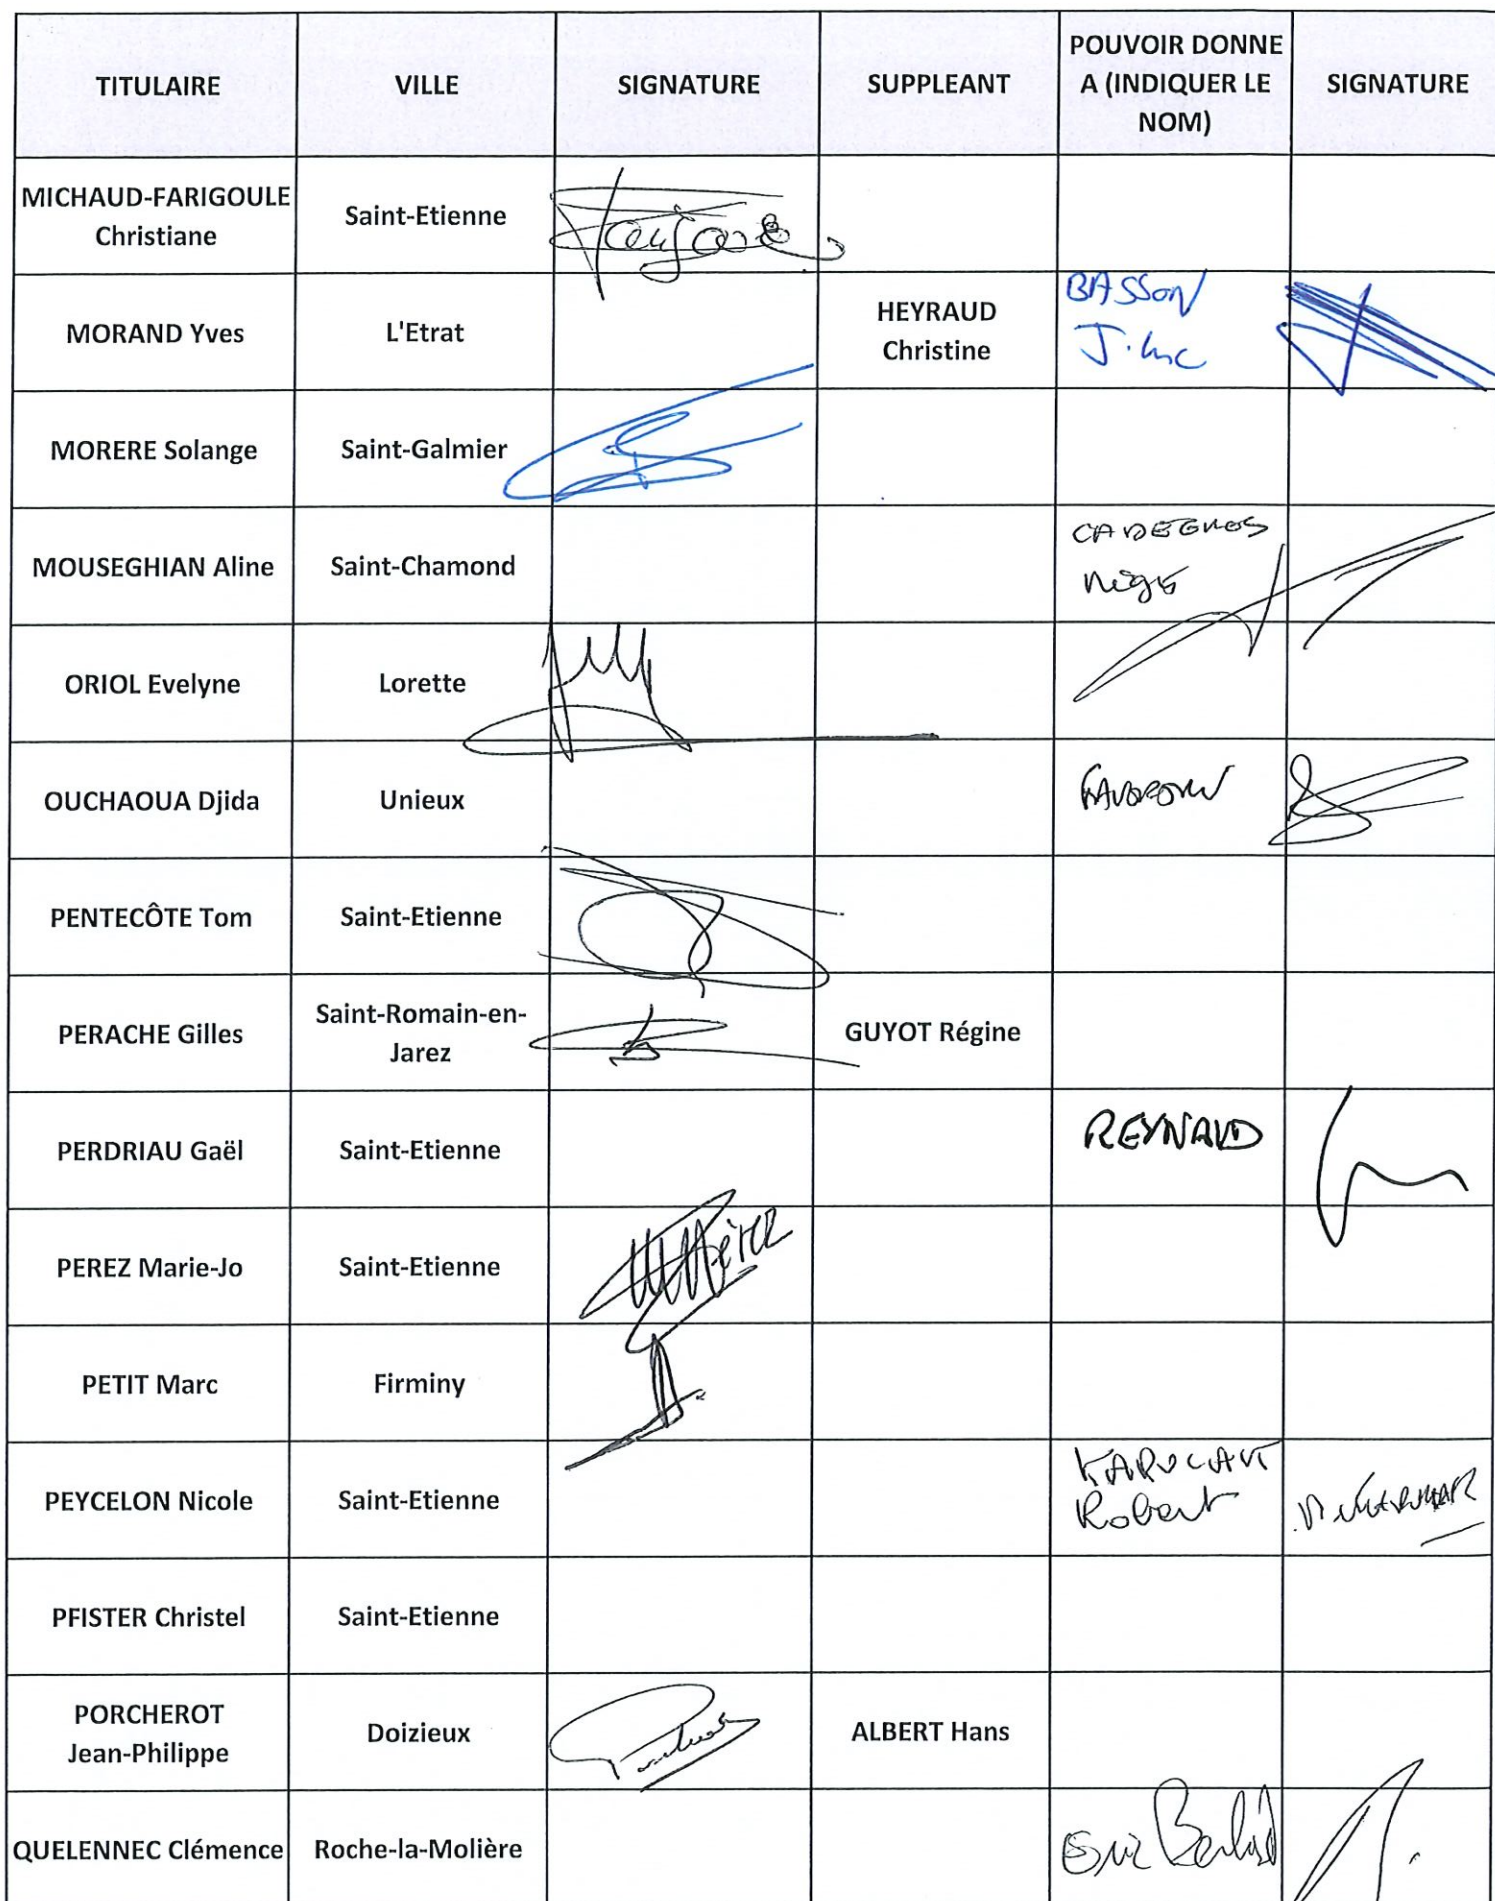 TITULAIRE
VILLE
SIGNATURE
SUPPLEANT
POUVOIR DONNE
A (INDIQUER LE
NOM)
SIGNATURE
MICHAUD-FARIGOULE
Christiane
Saint-Etienne
MORAND Yves
L'Etrat
HEYRAUD
Christine
BASSON
J.Luc
MORERE Solange
Saint-Galmier
MOUSEGHIAN Aline
Saint-Chamond
ORIOL Evelyne
Lorette
OUCHAOUA Djida
Unieux
PENTECÔTE Tom
Saint-Etienne
PERACHE Gilles
Saint-Romain-en-
Jarez
GUYOT Régine
PERDRIAU Gaël
Saint-Etienne
REYNAUD
PEREZ Marie-Jo
Saint-Etienne
PETIT Marc
Firminy
PEYCELON Nicole
Saint-Etienne
Robert
PFISTER Christel
Saint-Etienne
PORCHEROT
Jean-Philippe
Doizieux
ALBERT Hans
QUELENNEC Clémence
Roche-la-Molière
Eric